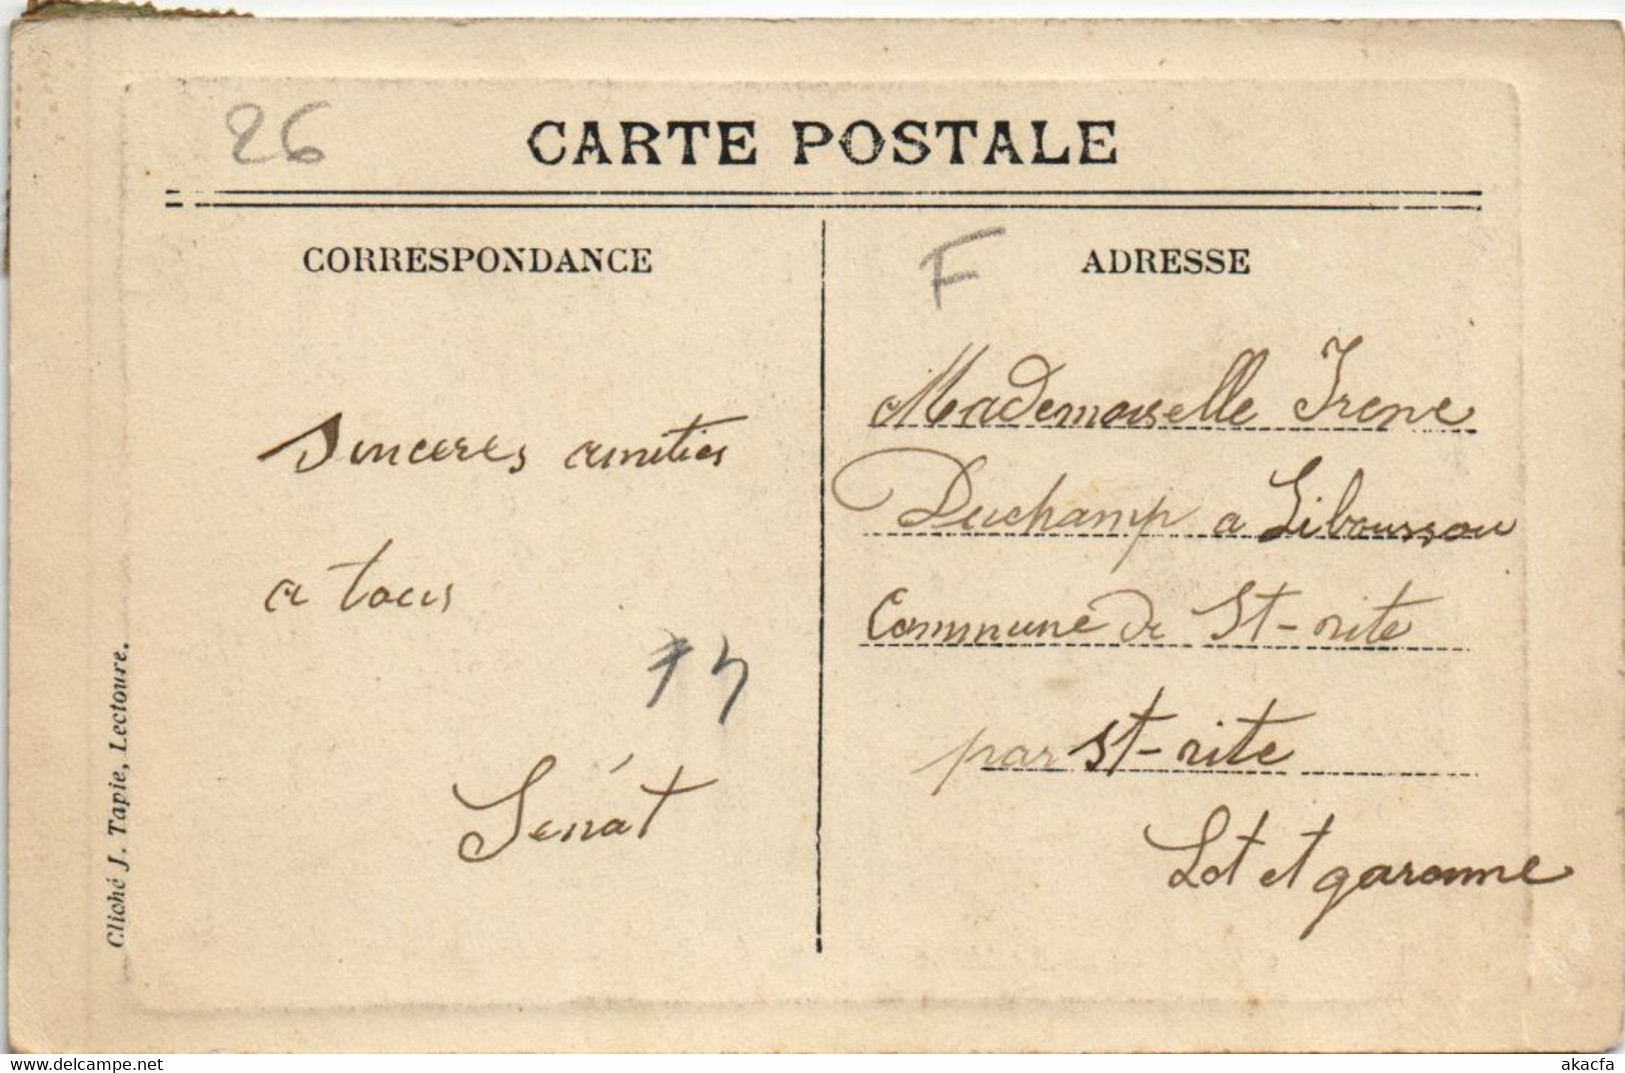 26
CARTE POSTALE
CORRESPONDANCE
F
ADRESSE
Sinceres amities
a tous
Sénat
Mademoiselle Irene
Duchamp a Liboussou
Commune de St-vite
par St-vite
Lot et garonne
Cliché J. Tapie, Lectoure.
delcampe.net
akacfa